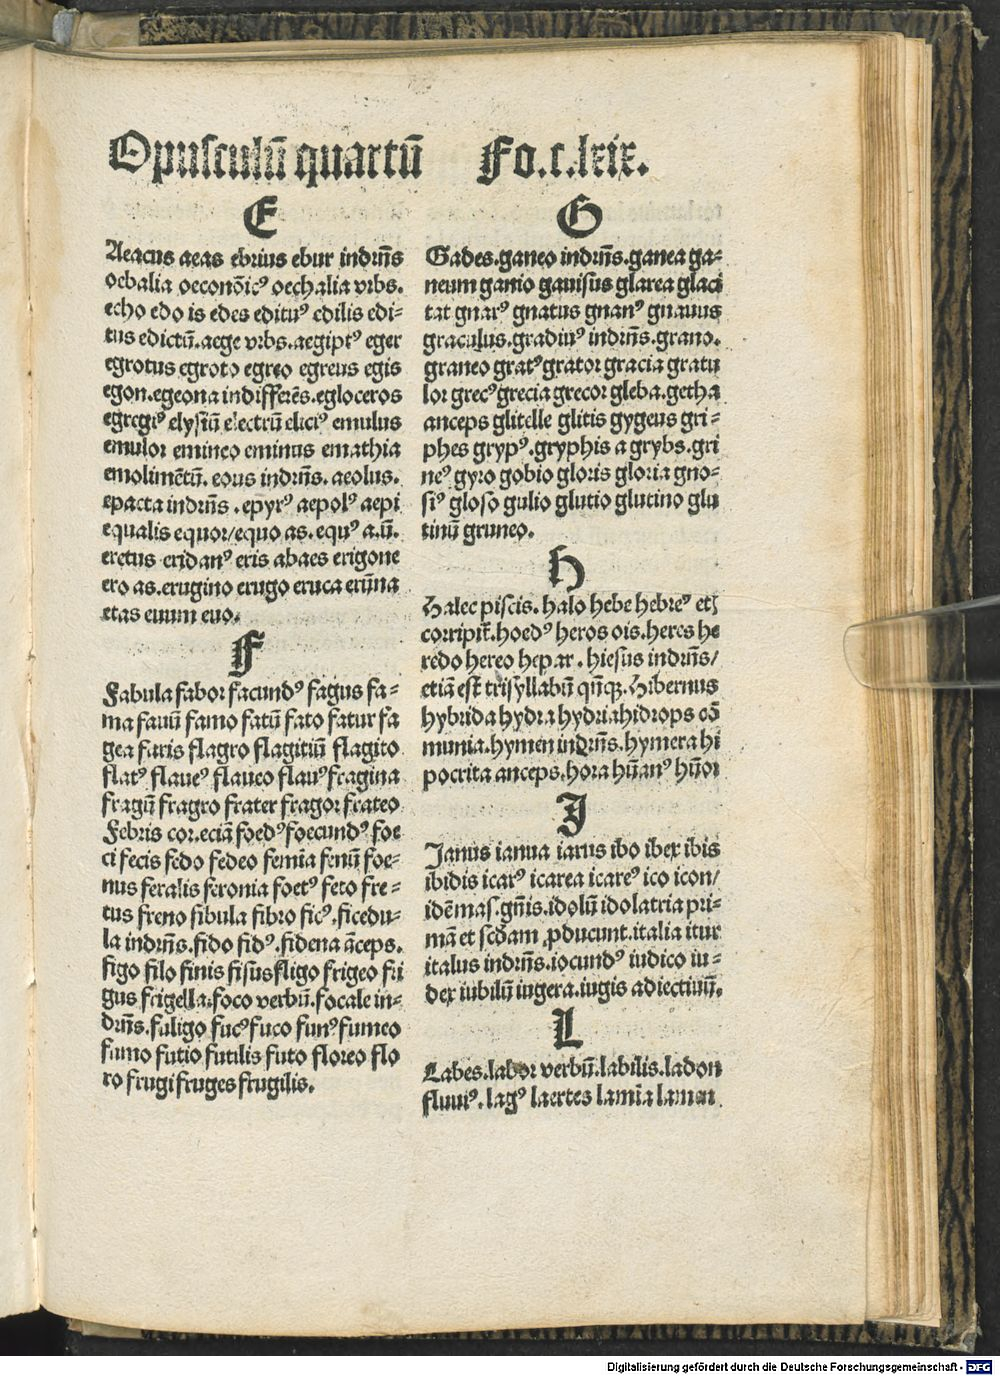 Opusculū quartū Fo.c.lxix.
E
Aeacus aeas ebrius ebur indr̄ns
oebalia oeconōicꝰ oechalia vrbs.
echo edo is edes edituꝰ edilis edi-
tus edictū.aege vrbs.aegiptꝰ eger
egrotus egroto egreo egreus egis
egon.egeona indifferēs.egloceros
egregiꝰ elysiū electrū eliciꝰ emulus
emulor emineo eminus emathia
emolimētū. eous indr̄ns. aeolus.
epacta indr̄ns .epyrꝰ aepolꝰ aepi
equalis equor/equo as. equꝰ a.ū.
eretus eridanꝰ eris abaes erigone
ero as.erugino erugo eruca erūna
etas euum euo.
F
Fabula fabor facundꝰ fagus fa-
ma fauū famo fatū fato fatur fa
gea furis flagro flagitiū flagito
flatꝰ flaueꝰ flaueo flauꝰ fragina
fragū fragro frater fragor frateo
Febris cor.eciā foedꝰ foecundꝰ foe
ci fecis fedo fedeo femia fenū foe-
nus feralis feronia foetꝰ feto fre-
tus freno fibula fibro ficꝰ.ficedu-
la indr̄ns.fido fidꝰ.fidena āceps.
figo filo finis fisus fligo frigeo fri
gus frigella.foco verbū.focale in-
dr̄ns.fuligo fucꝰ fuco funꝰ fumeo
fumo futio futilis futo floreo flo
ro frugi fruges frugilis.
G
Gades.ganeo indr̄ns.ganea ga-
neum ganio gauisus glarea glaci
tat gnarꝰ gnatus gnanꝰ gnauus
graculus.gradiuꝰ indr̄ns.grano.
graneo gratꝰ grator gracia gratu
lor grecꝰ grecia grecor gleba.getha
anceps glitelle glitis gygeus gri-
phes grypꝰ.gryphis a grybs.gri
neꝰ gyro gobio gloris gloria gno-
siꝰ gloso gulio glutio glutino glu
tinū gruneo.
H
Halec piscis. halo hebe hebreꝰ etꝫ
corripit̄.hoedꝰ heros ois.heres he
redo hereo hepar . hiesus indr̄ns/
etiā est trisyllabū qn̄qꝫ.Hibernus
hybrida hydra hydria hidrops cō
munia.hymen indr̄ns.hymera hi
pocrita anceps.hora hūanꝰ hūor
I
Ianus ianua iarus ibo ibex ibis
ibidis icarꝰ icarea icareꝰ ico icon/
idē mas.gn̄is.idolū idolatria pri-
mā et scdam ꝓducunt.italia itur
italus indr̄ns.iocundꝰ iudico iu-
dex iubilū iugera.iugis adiectiuū.
L
Labes.labor verbū.labilis.ladon
fluuiꝰ.lagꝰ laertes lamia lamen
Digitalisierung gefördert durch die Deutsche Forschungsgemeinschaft - DFG